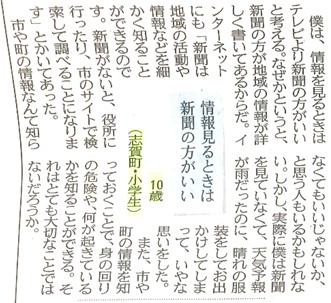 情報見るときは
新聞の方がいい
10歳
(志賀町・小学生)
僕は、情報を見るときは
テレビより新聞の方がいい
と考える。なぜかというと、
新聞の方が地域の情報が詳
しく書いてあるからだ。イ
ンターネット
にも「新聞は
地域の活動や
情報などを細
かく知ること
ができるので
す。新聞がないと、役所に
行ったり、市のサイトで検
索して調べることになりま
す」とかいてあった。
市や町の情報なんて知ら
なくてもいいじゃないか、
と思う人もいるかもしれな
い。しかし、実際に僕は新聞
を見ていなくて、天気予報
が雨だったのに、晴れの服
装をしてお出
かけしてしま
って、いやな
思いをした。
また、市や
町の情報を知
っておくことで、身の回り
の危険や、何が起きている
かを知ることができる。そ
れはとても大切なことでは
ないだろうか。